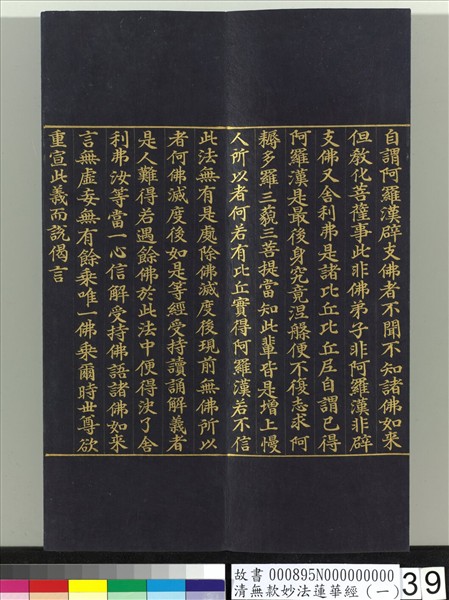 自謂阿羅漢辟支佛者不聞不知諸佛如來
但教化菩薩事此非佛弟子非阿羅漢非辟
支佛又舍利弗是諸比丘比丘尼自謂已得
阿羅漢是最後身究竟涅槃便不復志求阿
耨多羅三藐三菩提當知此輩皆是增上慢
人所以者何若有比丘實得阿羅漢若不信
此法無有是處除佛滅度後現前無佛所以
者何佛滅度後如是等經受持讀誦解義者
是人難得若遇餘佛於此法中便得決了舍
利弗汝等當一心信解受持佛語諸佛如來
言無虛妄無有餘乘唯一佛乘爾時世尊欲
重宣此義而說偈言
故書 000895N000000000
清無款妙法蓮華經(一)
39